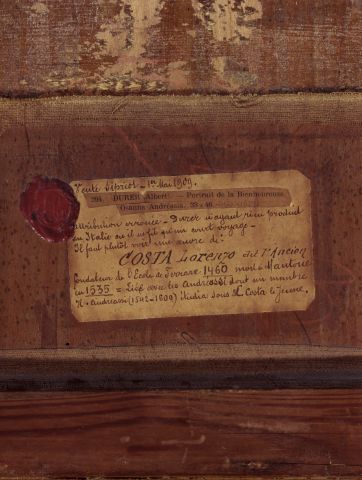 Vente Libriot - 1er Mai 1909.
294 DURER Albert — Portrait de la Bienheureuse
Osanna Andreasia, 33 x 46.
attribution erronée - Durer n'ayant rien produit
en Italie où il ne fit qu'un court voyage -
Il faut plutôt voir une œuvre di:
COSTA Lorenzo dit l'Ancien
fondateur de l'Ecole de Ferrare 1460 mort à Mantoue
en 1535 = Lié avec les Andreossi dont un membre
H. Andreassi (1548-1809) étudia sous L. Costa le jeune.